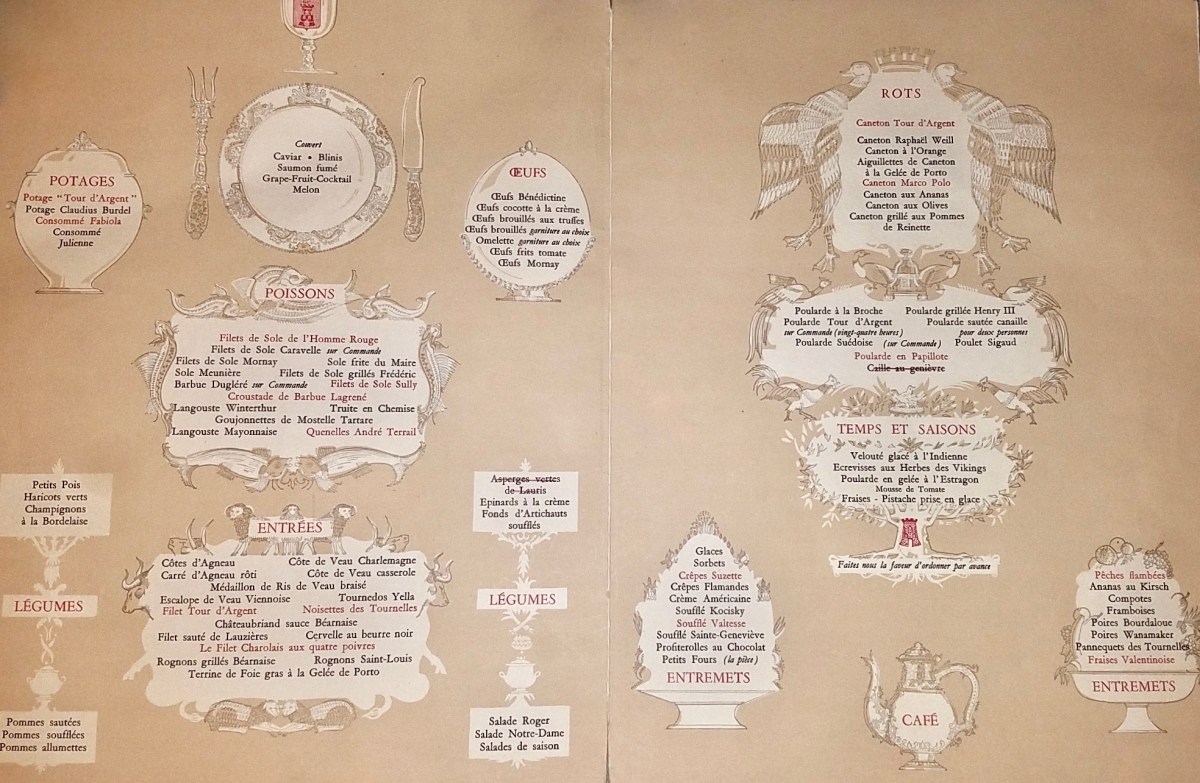 Couvert
Caviar • Blinis
Saumon fumé
Grape-Fruit-Cocktail
Melon
POTAGES
Potage "Tour d'Argent"
Potage Claudius Burdel
Consommé Fabiola
Consommé
Julienne
ŒUFS
Œufs Bénédictine
Œufs cocotte à la crème
Œufs brouillés aux truffes
Œufs brouillés garniture au choix
Omelette garniture au choix
Œufs frits tomate
Œufs Mornay
POISSONS
Filets de Sole de l'Homme Rouge
Filets de Sole Caravelle sur Commande
Filets de Sole Mornay Sole frite du Maire
Sole Meunière Filets de Sole grillés Frédéric
Barbue Dugléré sur Commande Filets de Sole Sully
Croustade de Barbue Lagrené
Langouste Winterthur Truite en Chemise
Goujonnettes de Mostelle Tartare
Langouste Mayonnaise Quenelles André Terrail
ENTRÉES
Côtes d'Agneau Côte de Veau Charlemagne
Carré d'Agneau rôti Côte de Veau casserole
Médaillon de Ris de Veau braisé
Escalope de Veau Viennoise Tournedos Yella
Filet Tour d'Argent Noisettes des Tournelles
Châteaubriand sauce Béarnaise
Filet sauté de Lauzières Cervelle au beurre noir
Le Filet Charolais aux quatre poivres
Rognons grillés Béarnaise Rognons Saint-Louis
Terrine de Foie gras à la Gelée de Porto
Petits Pois
Haricots verts
Champignons
à la Bordelaise
LÉGUMES
Pommes sautées
Pommes soufflées
Pommes allumettes
Asperges vertes
de Lauris
Epinards à la crème
Fonds d'Artichauts
soufflés
LÉGUMES
Salade Roger
Salade Notre-Dame
Salades de saison
ROTS
Caneton Tour d'Argent
Caneton Raphaël Weill
Caneton à l'Orange
Aiguillettes de Caneton
à la Gelée de Porto
Caneton Marco Polo
Caneton aux Ananas
Caneton aux Olives
Caneton grillé aux Pommes
de Reinette
Poularde à la Broche Poularde grillée Henry III
Poularde Tour d'Argent Poularde sautée canaille
sur Commande (vingt-quatre heures) pour deux personnes
Poularde Suédoise (sur Commande) Poulet Sigaud
Poularde en Papillote
Caille au genièvre
TEMPS ET SAISONS
Velouté glacé à l'Indienne
Ecrevisses aux Herbes des Vikings
Poularde en gelée à l'Estragon
Mousse de Tomate
Fraises - Pistache prise en glace
Faites nous la faveur d'ordonner par avance
Glaces
Sorbets
Crêpes Suzette
Crêpes Flamandes
Crème Américaine
Soufflé Kocisky
Soufflé Valtesse
Soufflé Sainte-Geneviève
Profiterolles au Chocolat
Petits Fours (la pièce)
ENTREMETS
CAFÉ
Pêches flambées
Ananas au Kirsch
Compotes
Framboises
Poires Bourdaloue
Poires Wanamaker
Pannequets des Tournelles
Fraises Valentinoise
ENTREMETS